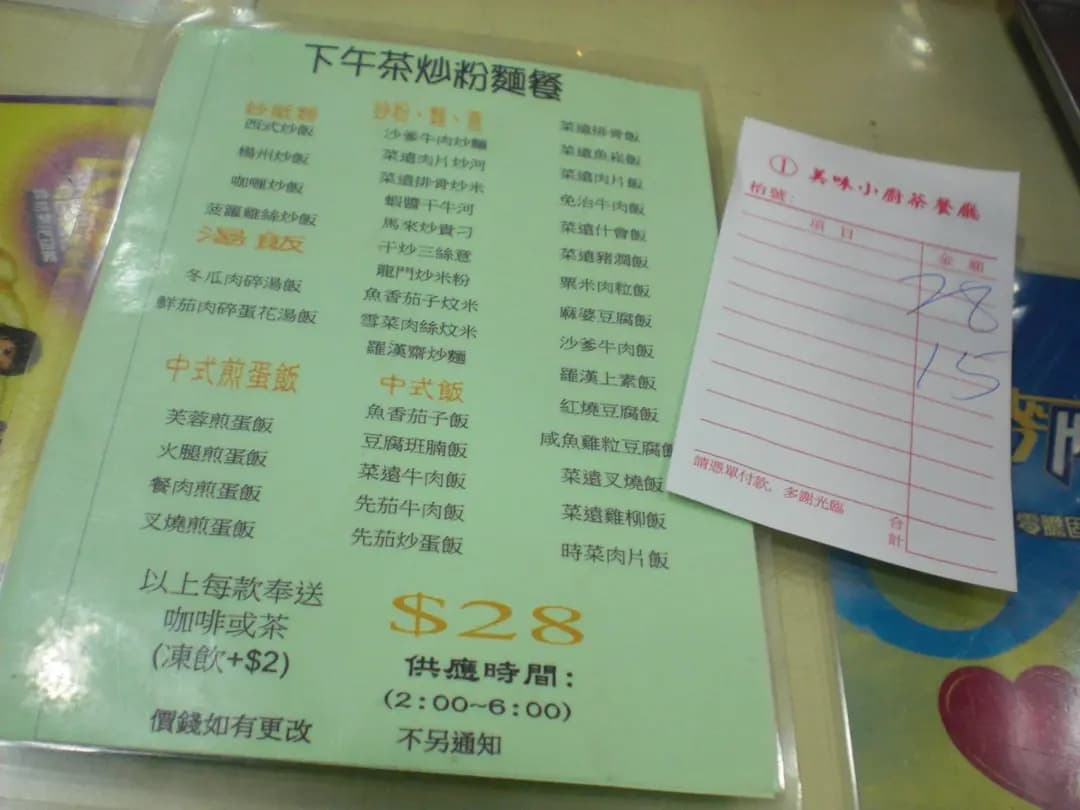 下午茶炒粉麵餐
炒飯類
西式炒飯
楊州炒飯
咖喱炒飯
菠蘿雞絲炒飯
湯飯
冬瓜肉碎湯飯
鮮茄肉碎蛋花湯飯
中式煎蛋飯
芙蓉煎蛋飯
火腿煎蛋飯
餐肉煎蛋飯
叉燒煎蛋飯
炒粉、麵、
沙爹牛肉炒麵
菜遠肉片炒河
菜遠排骨炒米
蝦醬干牛河
馬來炒貴刁
干炒三絲意
龍門炒米粉
魚香茄子炆米
雪菜肉絲炆米
羅漢齋炒麵
中式飯
魚香茄子飯
豆腐班腩飯
菜遠牛肉飯
先茄牛肉飯
先茄炒蛋飯
菜遠排骨飯
菜遠魚崧飯
菜遠肉片飯
免治牛肉飯
菜遠什會飯
菜遠豬潤飯
粟米肉粒飯
麻婆豆腐飯
沙爹牛肉飯
羅漢上素飯
紅燒豆腐飯
咸魚雞粒豆腐飯
菜遠叉燒飯
菜遠雞柳飯
時菜肉片飯
以上每款奉送
咖啡或茶
(凍飲+$2)
$28
供應時間:
(2:00~6:00)
價錢如有更改 不另通知
① 美味小廚茶餐廳
枱號:
項目 金額
28
15
請憑單付款, 多謝光臨
合計
零膽固